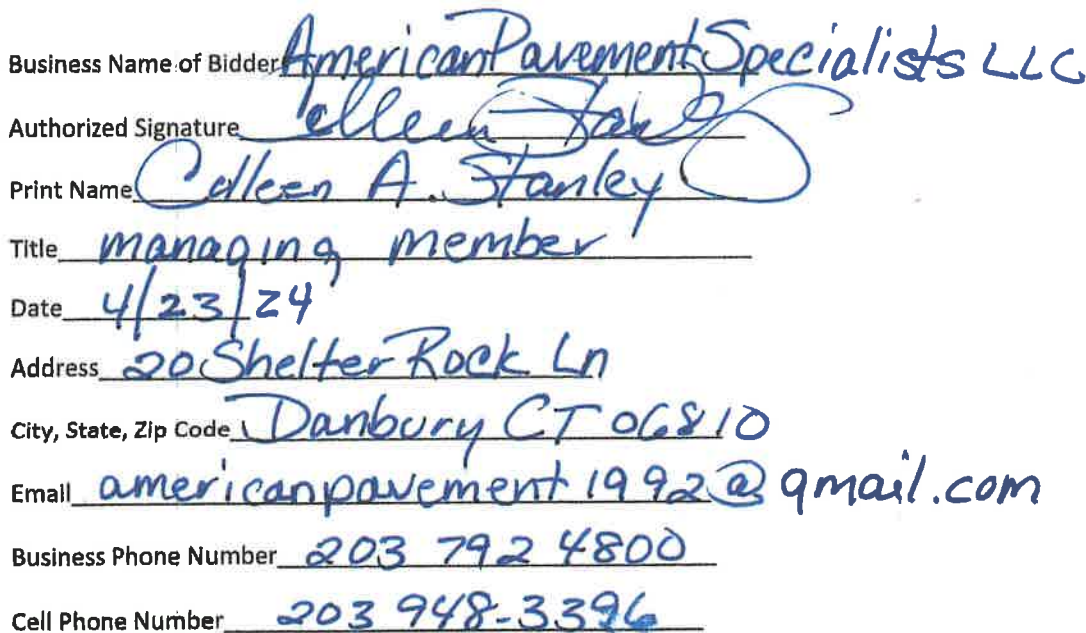 Business Name of Bidder American Pavement Specialists LLC
Authorized Signature Colleen Stanley
Print Name Colleen A. Stanley
Title managing member
Date 4/23/24
Address 20 Shelter Rock Ln
City, State, Zip Code Danbury CT 06810
Email americanpavement1992@gmail.com
Business Phone Number 203 792 4800
Cell Phone Number 203 948-3396